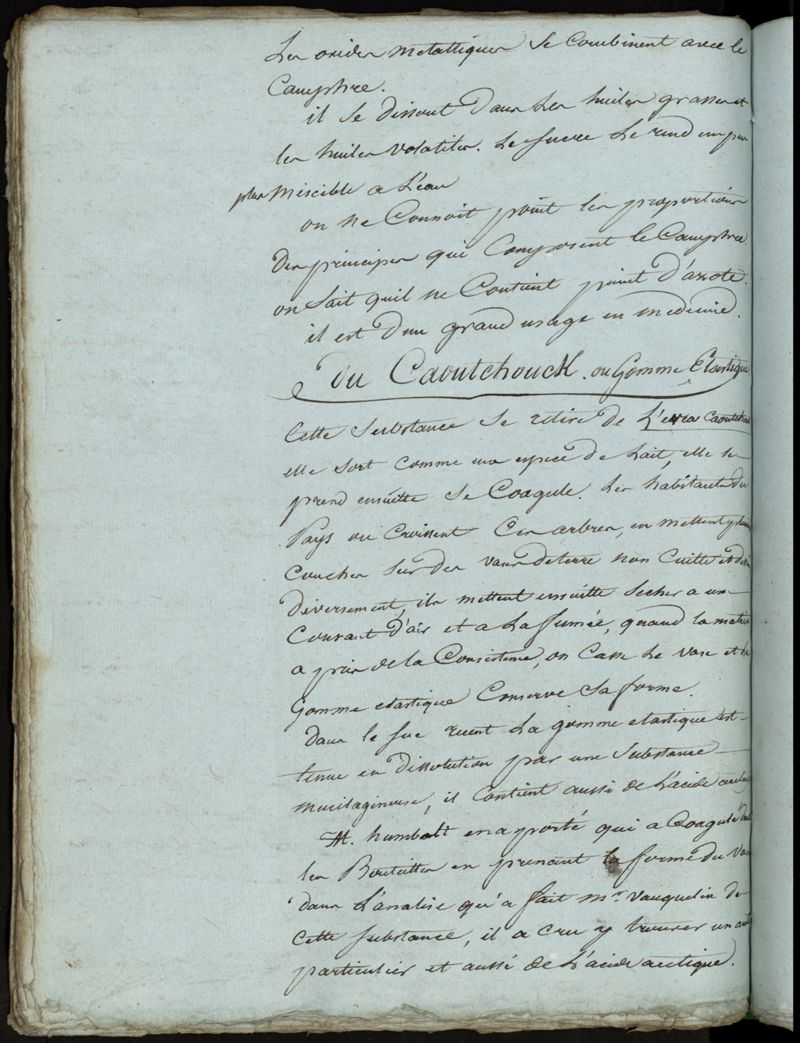 Les oxides metalliques se combinent avec le
Camphre.
il se dissout dans les huiles grasses et
les huiles volatiles. Le sucre le rend un peu
plus miscible a l'eau
on ne Connoit point les proportions
des principes qui Composent le Camphre
on sait quil ne Contient point d'azote.
il est d'un grand usage en medecine.
Du Caoutchouck. ou Gomme Elastique
Cette substance se retire de L'evea Caoutchouc
elle sort comme une espece de Lait, elle se
prend ensuitte se Coagule. Les habitants du
Pays ou Croissent Ces arbres, en mettent plusieurs
Couches sur des vases de terre non Cuitte
diversement, ils mettent ensuitte secher a un
Courant d'air et a La fumée, quand la matiere
a pris de la Consistence, on Casse Le vase et la
Gomme elastique Conserve sa forme.
dans le suc recent La gomme elastique est
tenue en dissolution par une substance
mucilagineuse, il Contient aussi de L'acide
M. humbolt en a porté qui a Coagulé dans
les Bouteilles en prenant la forme du Vase
dans L'analise qu'a fait Mr. Vauquelin de
Cette substance, il a cru y trouver un acide
particulier et aussi de L'acide acetique.